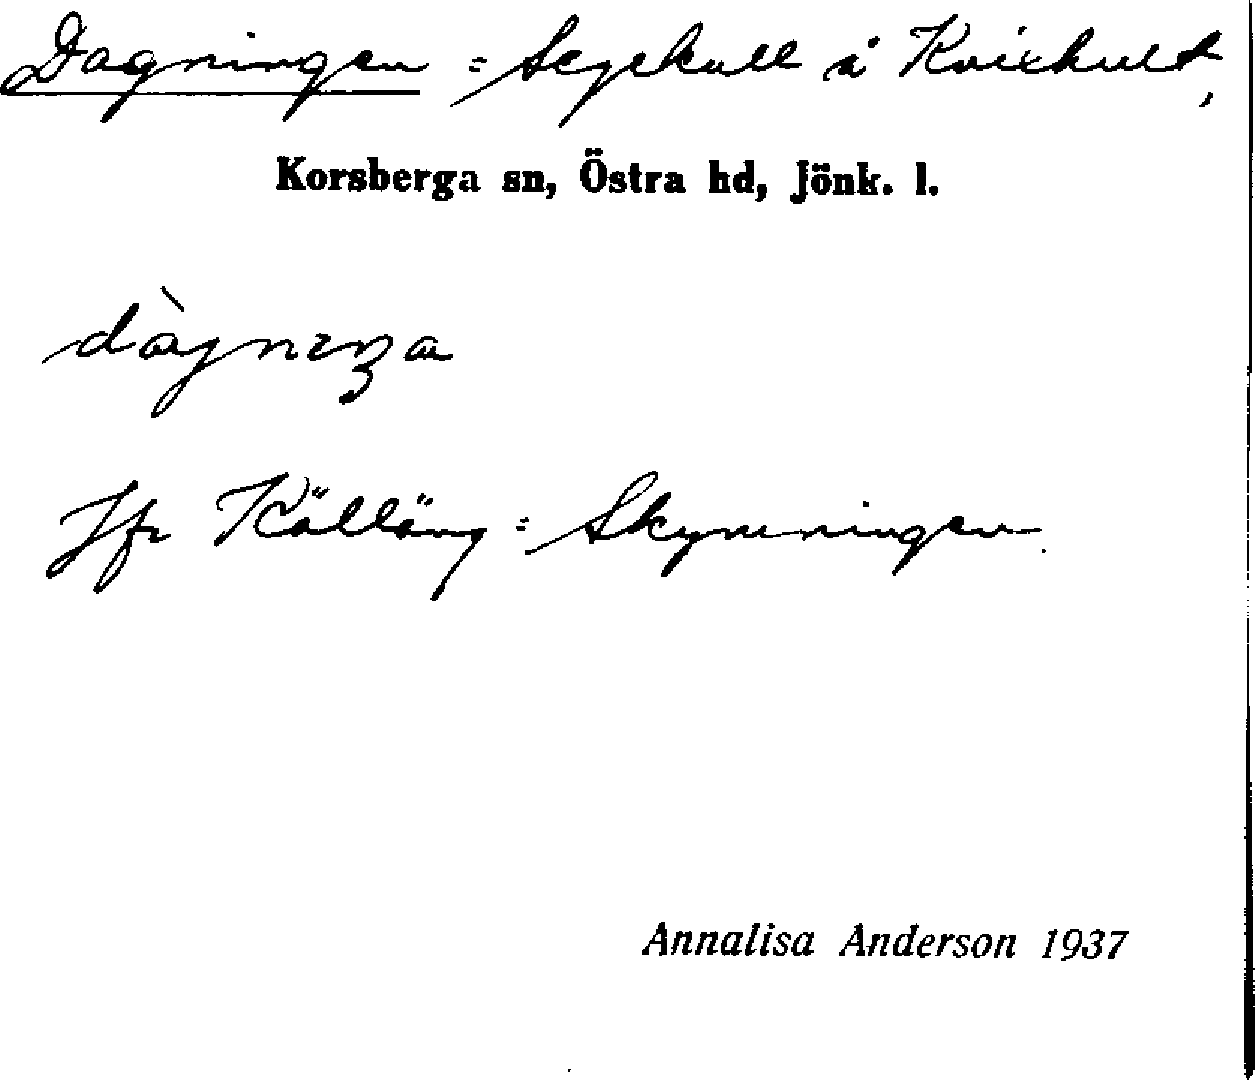 Dagningen = Segekull i Kvixhult,
Korsberga sn, Östra hd, Jönk. l.
dàgnıŋa
Jfr Källäng = Skymningen.
Annalisa Anderson 1937